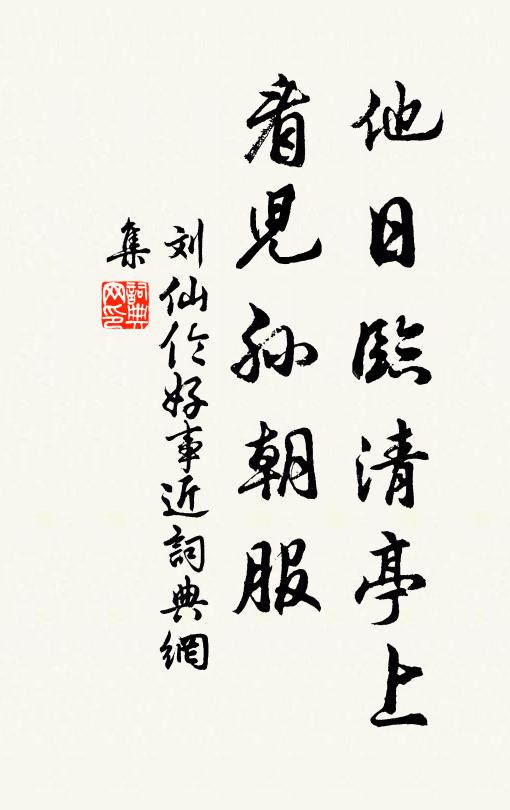 他日臨清亭上
看児孙朝服
刘仙伦好事近詞典網
集
詞典
网印